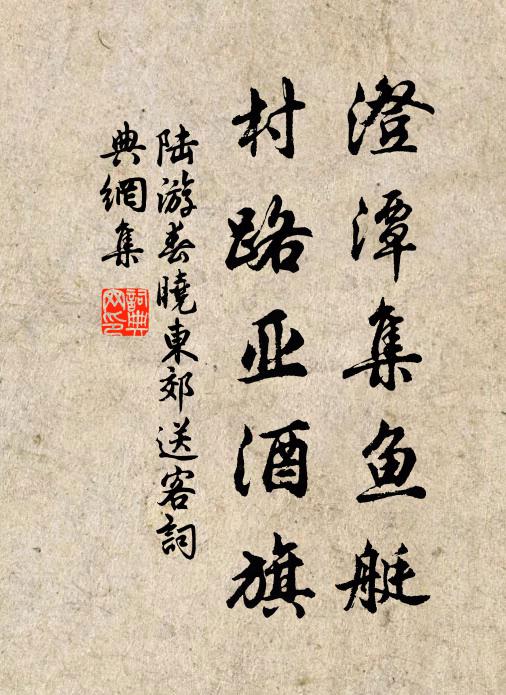 澄潭集鱼艇
村路亚酒旗
陆游春曉東郊送客詞
典網集
詞典网印